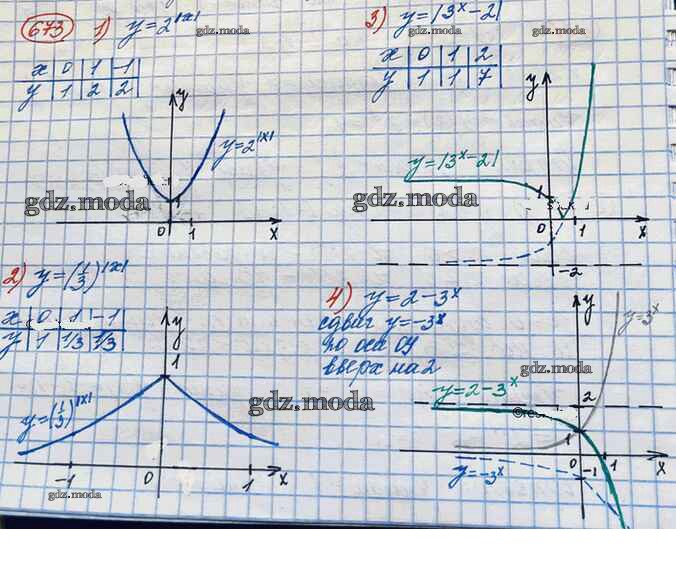 673 1) y=2^|x|
gdz.moda
x 0 1 -1
y 1 2 2
y
y=2^|x|
gdz.moda
1
0 1 x
2) y=(1/3)^|x|
x 0 1 -1
y 1 1/3 1/3
y
1
y=(1/3)^|x|
gdz.moda
-1 0 1 x
gdz.moda
3) y=|3^x-2|
gdz.moda
x 0 1 2
y 1 1 7
y
y=|3^x-2|
gdz.moda
0 1 x
-2
4) y=2-3^x
сдвиг y=-3^x
по оси OY
вверх на 2
y
y=3^x
gdz.moda
y=2-3^x
2
1
0 1 x
-1
y=-3^x